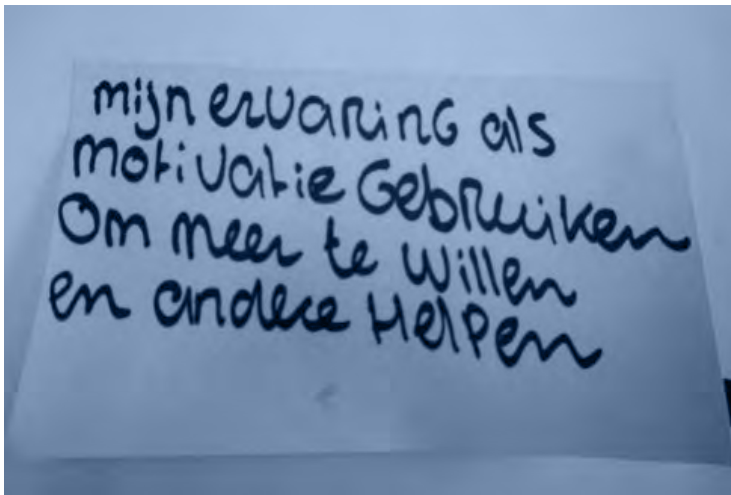 mijn ervaring als
motivatie Gebruiken
Om meer te willen
en andere Helpen